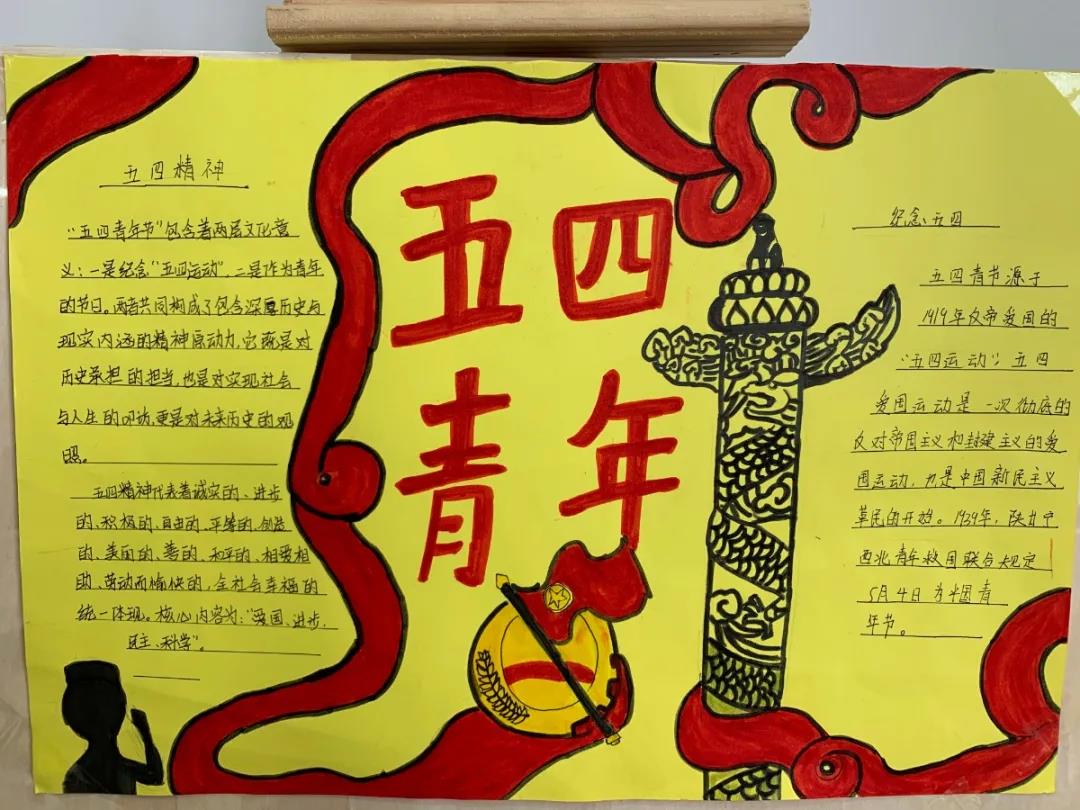 五四精神
“五四青年节”包含着两层文化意
义：一是纪念“五四运动”，二是作为青年
的节日。两者共同构成了包含深厚历史与
现实内涵的精神原动力，它既是对
历史承担的担当，也是对实现社会
与人生的叩访，更是对未来历史的观
照。
五四精神代表着诚实的、进步
的、积极的、自由的、平等的、创造
的、美丽的、善的、和平的、相爱相
助、劳动而愉快的，全社会幸福的
统一体现。核心内容为：“爱国、进步、
民主、科学”。
五四
青年
纪念五四
五四青节源于
1919年反帝爱国的
“五四运动”，五四
爱国运动是一次彻底的
反对帝国主义和封建主义的爱
国运动，也是中国新民主主义
革民的开始。1939年，陕甘宁
西北青年救国联合规定
5月4日为中国青
年节。